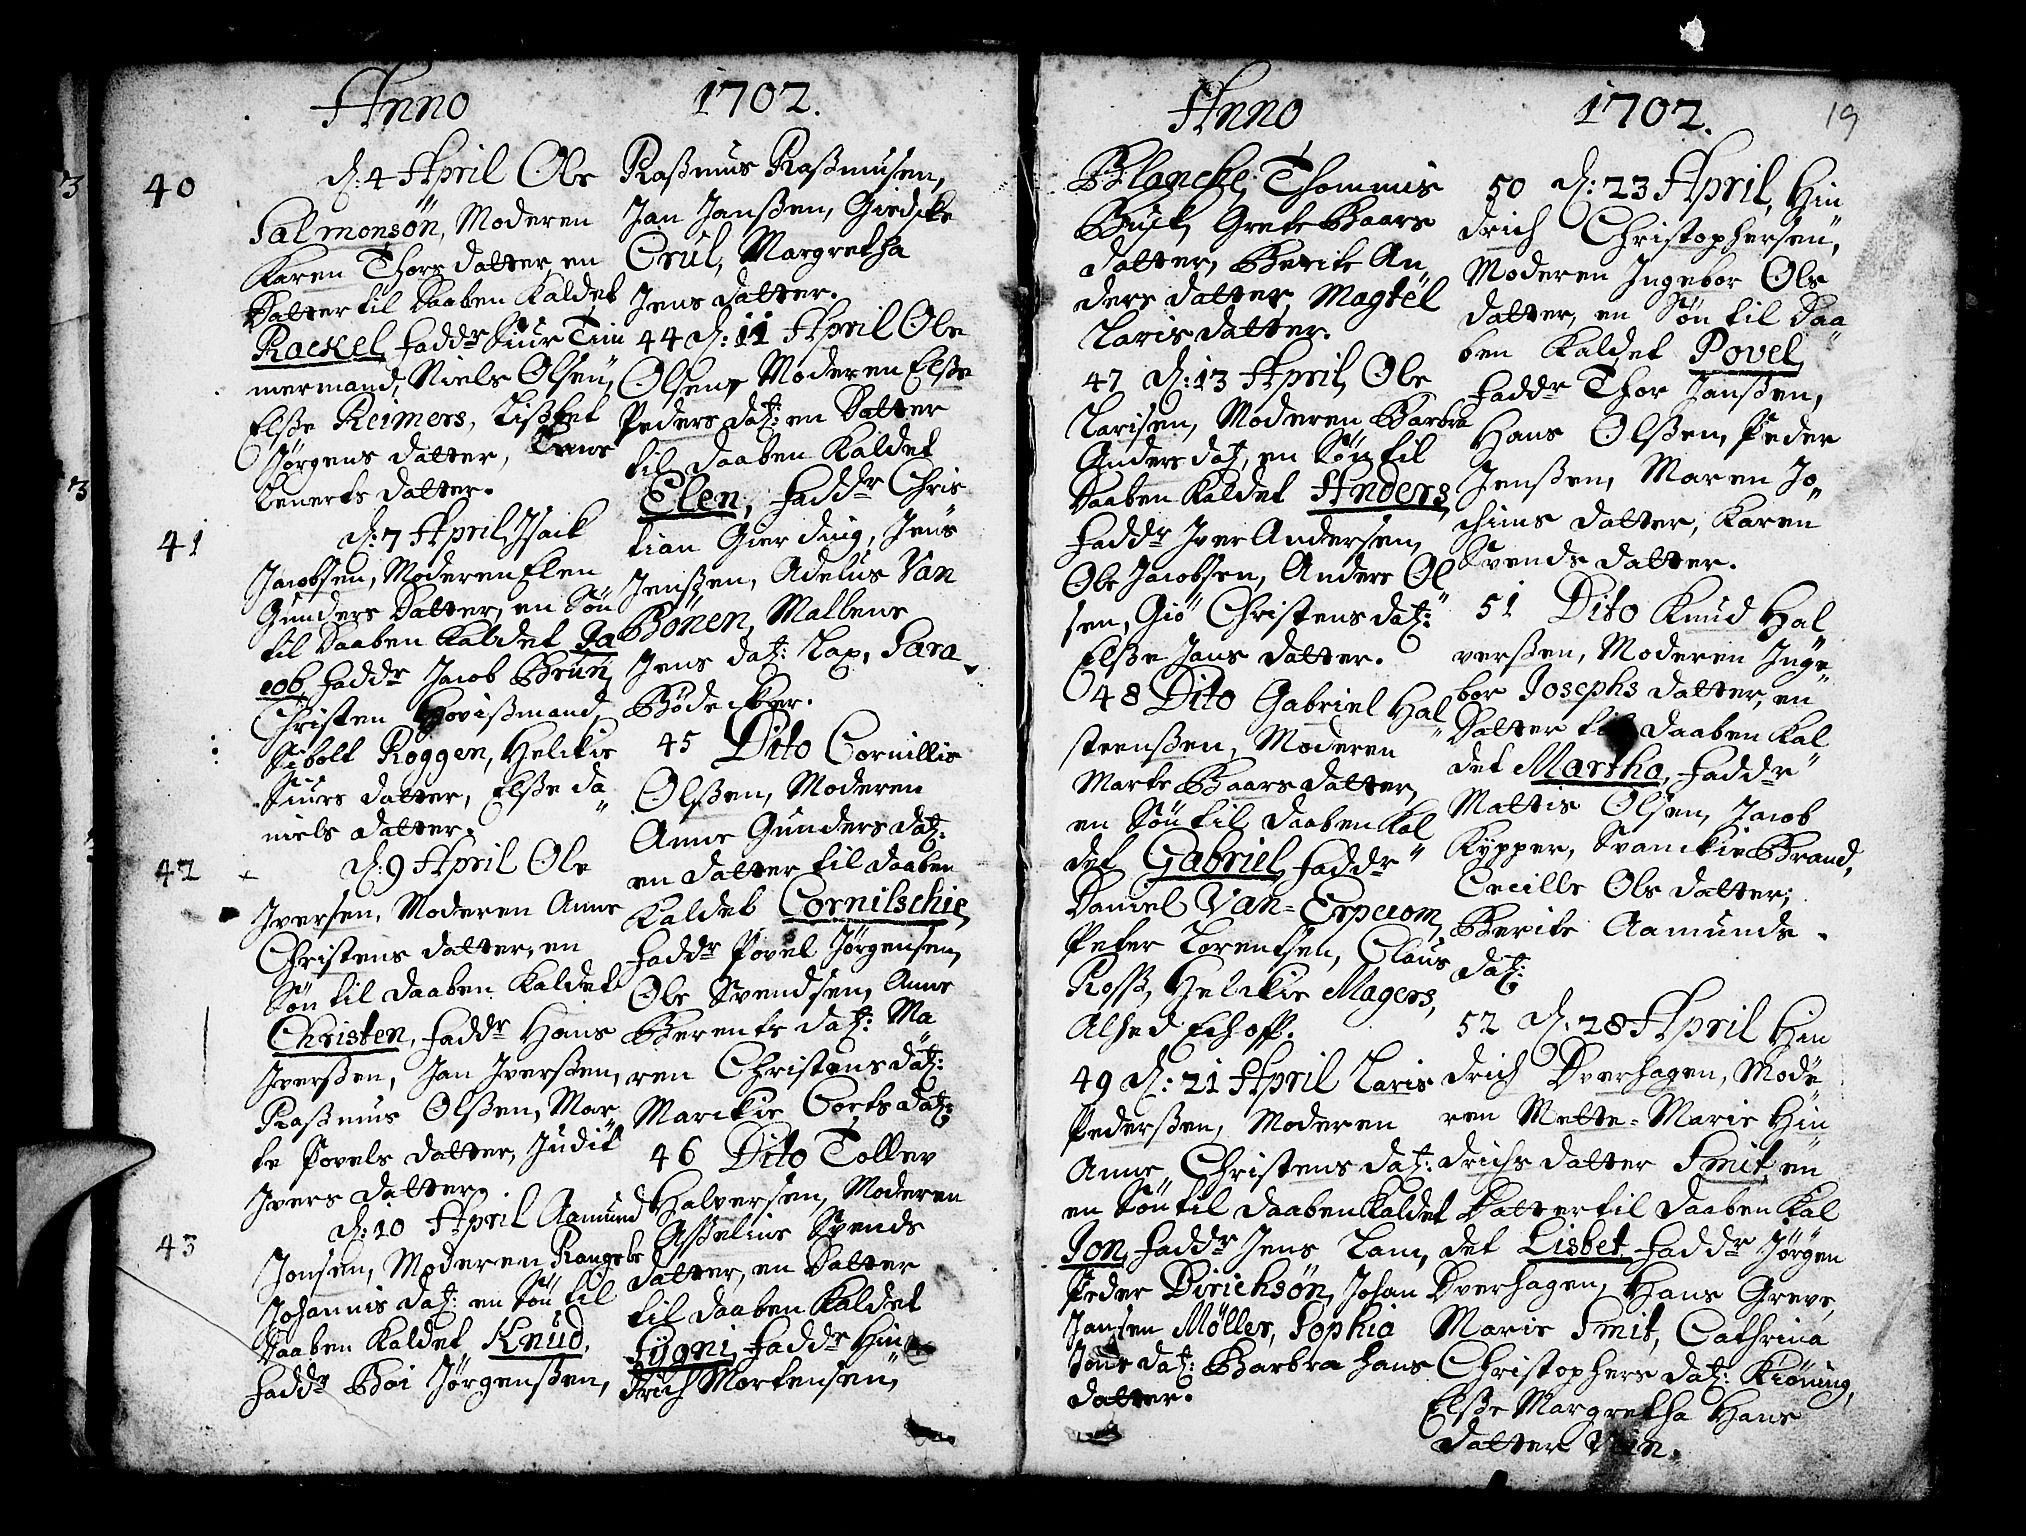 Anno 1702.
40 d: 4 April Ole
Salmonsøn, Moderen
Karen Thors datter en
Datter til Daaben kaldet
Rackel, faddr Siur Tim
mermand, Niels Olsen,
Elsße Reimers, Lißbet
Jørgens datter,
Lenerts datter.
41 d: 7 April, Isack
Jacobsen, Moderen Elen
Gunders Datter, en Søn
til Daaben kaldet Ja
cob, faddr Jacob Brun,
Christen Hovißmand,
Sibolt Roggen, Helckie
Siurs datter, Elße Da
niels datter.
42 d: 9 April Ole
Iversen, Moderen Anne
Christens datter, en
Søn til daaben kaldet
Christen, faddr Hans
Iverßen, Jan Iverßen,
Raßmus Olßen, Mar
te Povels datter, Judit
Ivers datter.
43 d: 10 April Aamund
Jonsen, Moderen Rangele
Johannis dat: en Søn til
Daaben kaldet Knud,
faddr Boi Jørgenßen,
Raßmus Raßmusen,
Jan Janßen, Giedske
Crul, Margretha
Jens datter.
44 d: 11 April Ole
Olsen, Moderen Elße
Peders dat: en Datter
til daaben kaldet
Elen, faddr Chris
tian Gierding, Jens
Jenßen, Adelus Van
Bönen, Mallene
Jens dat: Lax, Sara
Bödecker.
45 Dito Cornillis
Olßen, Moderen
Anne Gunders dat:
en datter til daaben
kaldet Cornilschie,
faddr Povel Jørgensen,
Ole Svendsen, Anne
Berents dat: Ma
ren Christens dat:
Marckie Corts dat:
46 Dito Tollev
Halversen, Moderen
Aßeline Svends
datter, en Datter
til daaben kaldet
Sygni, faddr Hin
drich Mortensen,
Anno 1702. 19
Blancke, Thommis
Buck, Grete Baars
datter, Berite An
ders datter, Magtel
Laris datter.
47 d: 13 April, Ole
Larisen, Moderen Barbra
Anders dat, en Søn til
Daaben kaldet Anders,
faddr Iver Andersen,
Ole Jacobsen, Anders Ol
sen, Giö Christens dat:
Elße Jans datter.
48 Dito Gabriel Hal
steenßen, Moderen
Marte Baars datter,
en Søn til daaben kal
det Gabriel, faddr
Daniel Van-Erpecom,
Peter Lorentsen, Claus
Roß, Helckie Magers,
Alhed Echoff.
49 d: 21 April Laris
Pederßen, Moderen
Anne Christens dat:
en Søn til daaben kaldet
Jon, faddr Jens Lam,
Peder Dirichsøn, Johan
Jansen Møller, Sophia
dat: Barbra Hans
datter.
50 d: 23 April, Hin
drich Christophersen,
Moderen Ingebor Ols
datter, en Søn til Daa
ben kaldet Povel,
faddr Thor Janßen,
Hans Olßen, Peder
Jenßen, Maren Jo
chims datter, Karen
Svends datter.
51 Dito Knud Hal
verßen, Moderen Inge
bor Josephs datter, en
Datter til daaben kal
det Martha, faddr
Mattis Olsen, Jacob
Kypper, Svanckie Brand,
Cecille Ols datter,
Berite Aamunds
dat:
52 d: 28 April Hin
drich Dverhagen, Mode
ren Mette-Marie Hin
drichs datter Smit, en
Datter til daaben kal
det Lisbet, faddr Jørgen
Dverhagen, Hans Greve,
Marie Smit, Cathrina
Christophers dat: Kiöning,
Elße Margretha Hans
datter